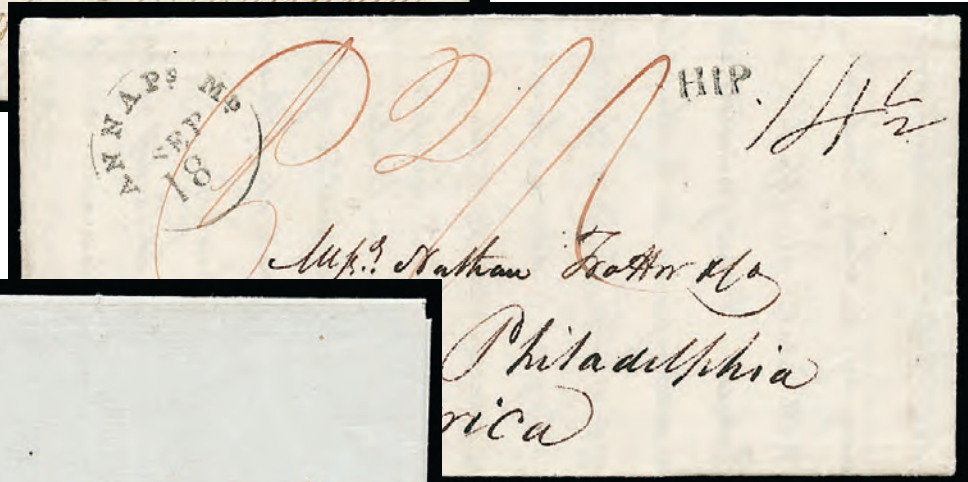 ANNAPS MD
SEP
18
P 2/
HIP
14 1/2
Messrs Nathan Trotter & Co
Philadelphia
rica